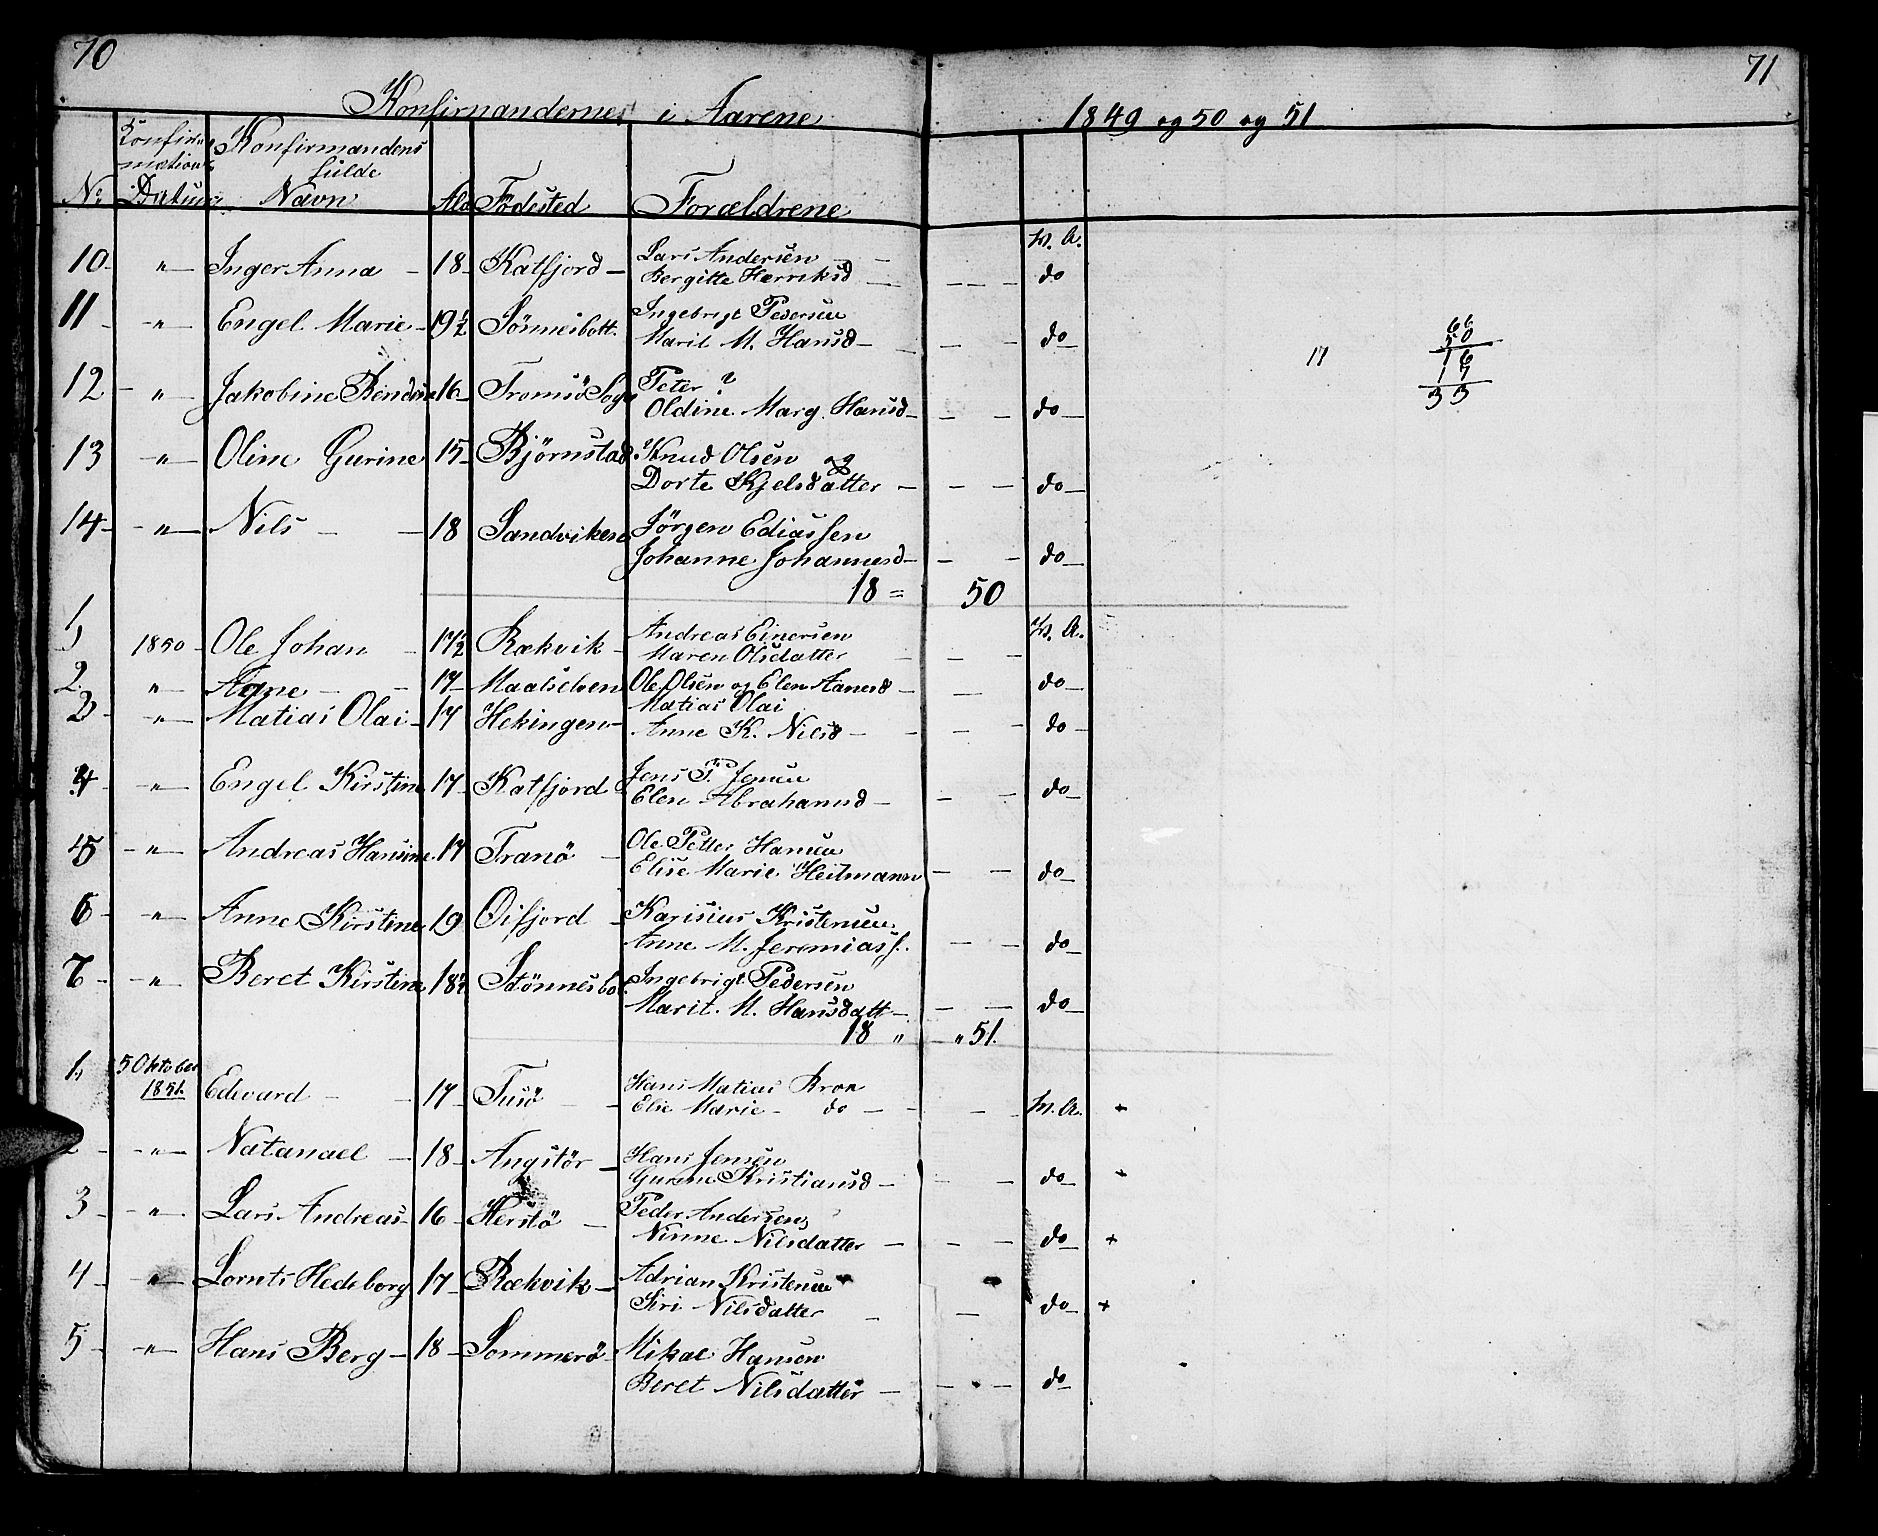 70
71
Konfirmandernes i Aarene 1849 og 50 og 51
No Konfirmations Datum Konfirmandens fulde Navn Ald Födested Forældrene
10 " Inger Anna 18 Katfjord Lars Andersen W. A.
Bergitte Henriksd do
11 " Engel Marie 19½ Sönnesbott. Ingebrigt Pedersen
Marit M. Hansd do
12 " Jakobine Bendine 16 Tromsö Sogn Peter ?
Oldine Marg. Hansd do
13 " Oline Gurine 15 Björnstad Knud Olsen og
Dorte Kjelsdatter do
14 " Nils 18 Sandviken Jörgen Ediassen
Johanne Johannesd do
18 = 50
1, 1850 Ole Johan 17½ Rækvik Andreas Einersen W. A.
Maren Olsdatter
2. " Aane 17 Maalselven Ole Olsen og Elen Aanesd do
3 " Matias Olai 17 Hekingen Matias Olai
Anne K. Nilsd do
4 " Engel Kirstine 17 Katfjord Jens P. Jensen
Elen Abrahamsd do
5 " Andreas Hansine 17 Tranö Ole Petter Hansen
Elise Marie Heitmann do
6 " Anne Kirstine 19 Oifjord Karisius Kristensen
Anne M. Jeremiass. do
7 " Beret Kirstine 18½ Stönnesbot Ingebrigt Pedersen
Marit M. Hansdatt do
18 " " 51.
1, 5 Oktober 1851. Edevard 17 Tusö Hans Matias Kron
Elie Marie do W. A. +
2 " Natanael 18 Angstör Hans Jensen
Gurine Kristiansd do +
3 " Lars Andreas 16 Herstö Peder Andersen
Ninne Nilsdatter do +
4 " Lornts Hedeborg 17 Rækvik Adrian Kristensen
Siri Nilsdatter do +
5 " Hans Berg 18 Sommerö Mikal Hansen
Beret Nilsdatter do
17
66
50
16
17
33